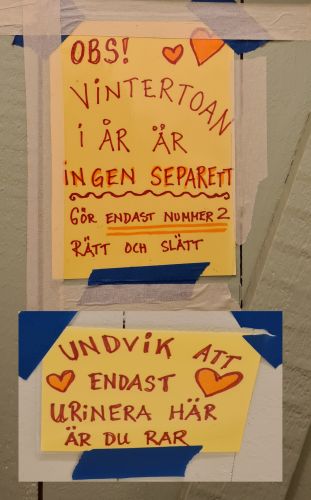 OBS!
VINTERTOAN
I ÅR ÄR
INGEN SEPARETT
GÖR ENDAST NUMMER 2
RÄTT OCH SLÄTT
UNDVIK ATT
ENDAST
URINERA HÄR
ÄR DU RAR